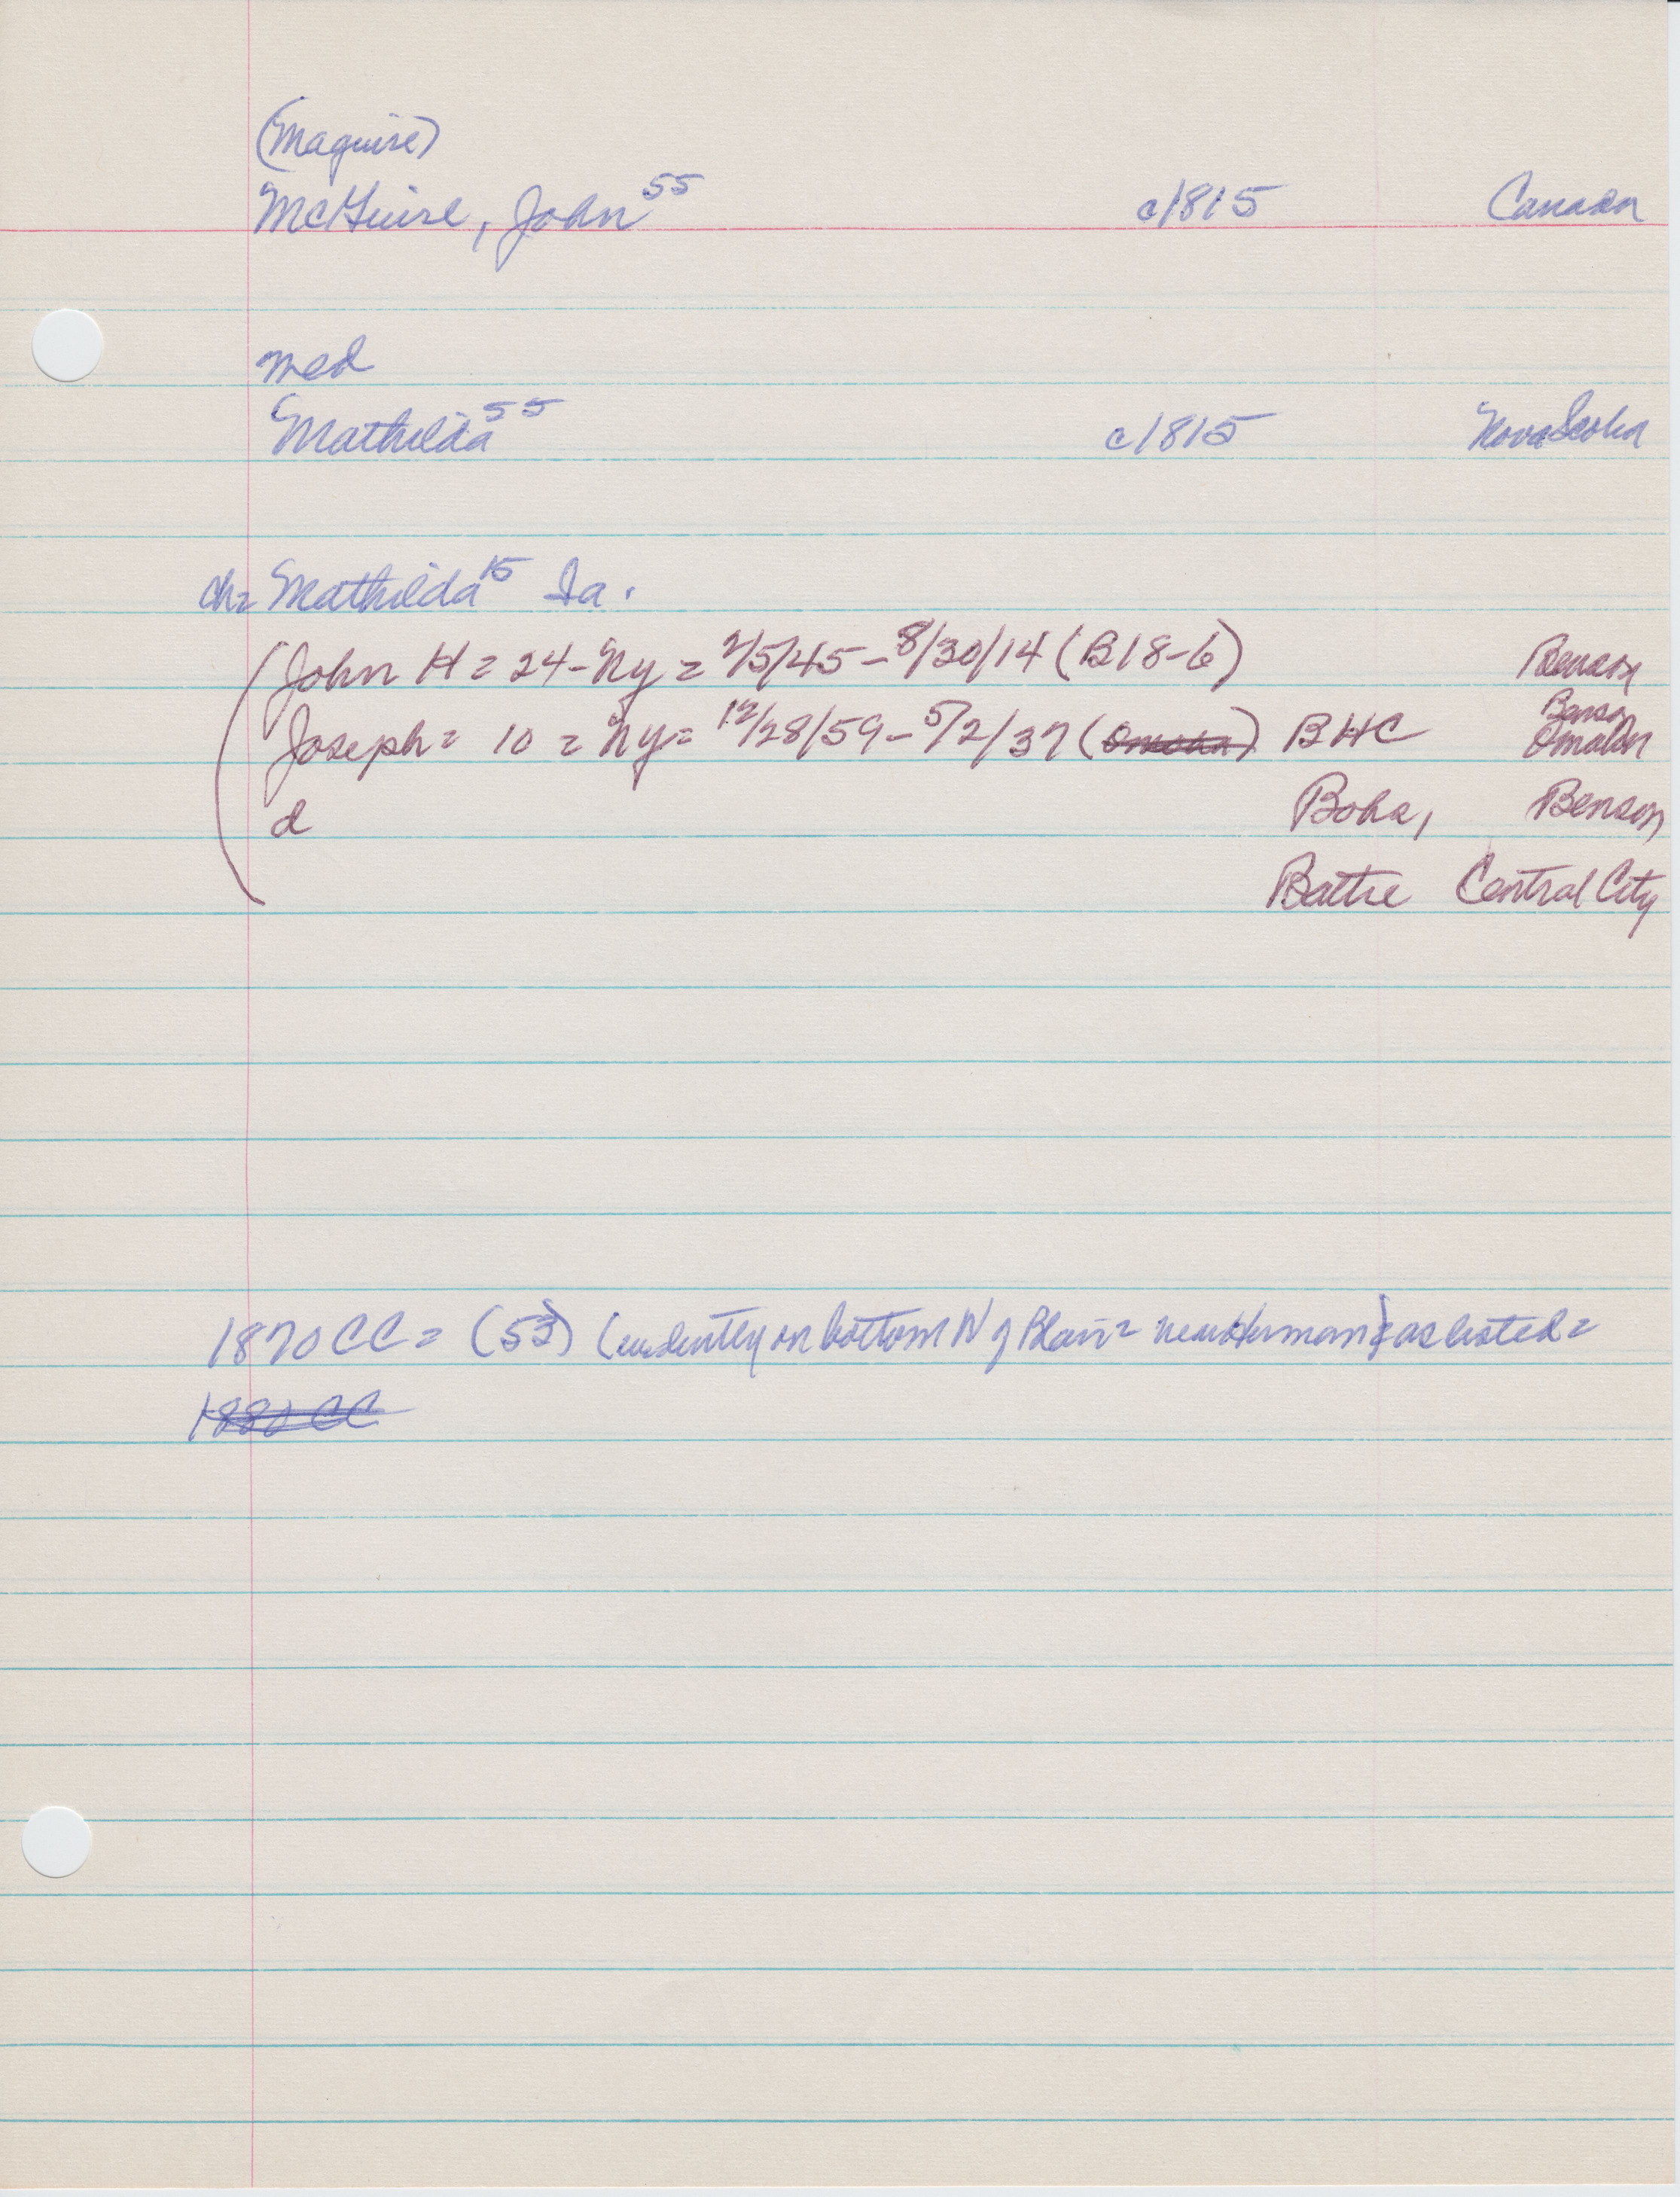 (Maguire)
McGuire, John 55 c1815 Canada
med
Mathilda 55 c1815 Nova Scotia
ch= Mathilda 15 Ia.
(John H = 24 - Ny = 2/5/45 - 8/30/14 (B18-6) Benson
Joseph = 10 = Ny = 12/28/59 - 5/2/37 (Omaha) BHC Benson Omaha
d Boha, Benson
Battre Central City
1870 CC = (53) (evidently on bottom N of Blair = near Herman) & as listed =
1880 CC